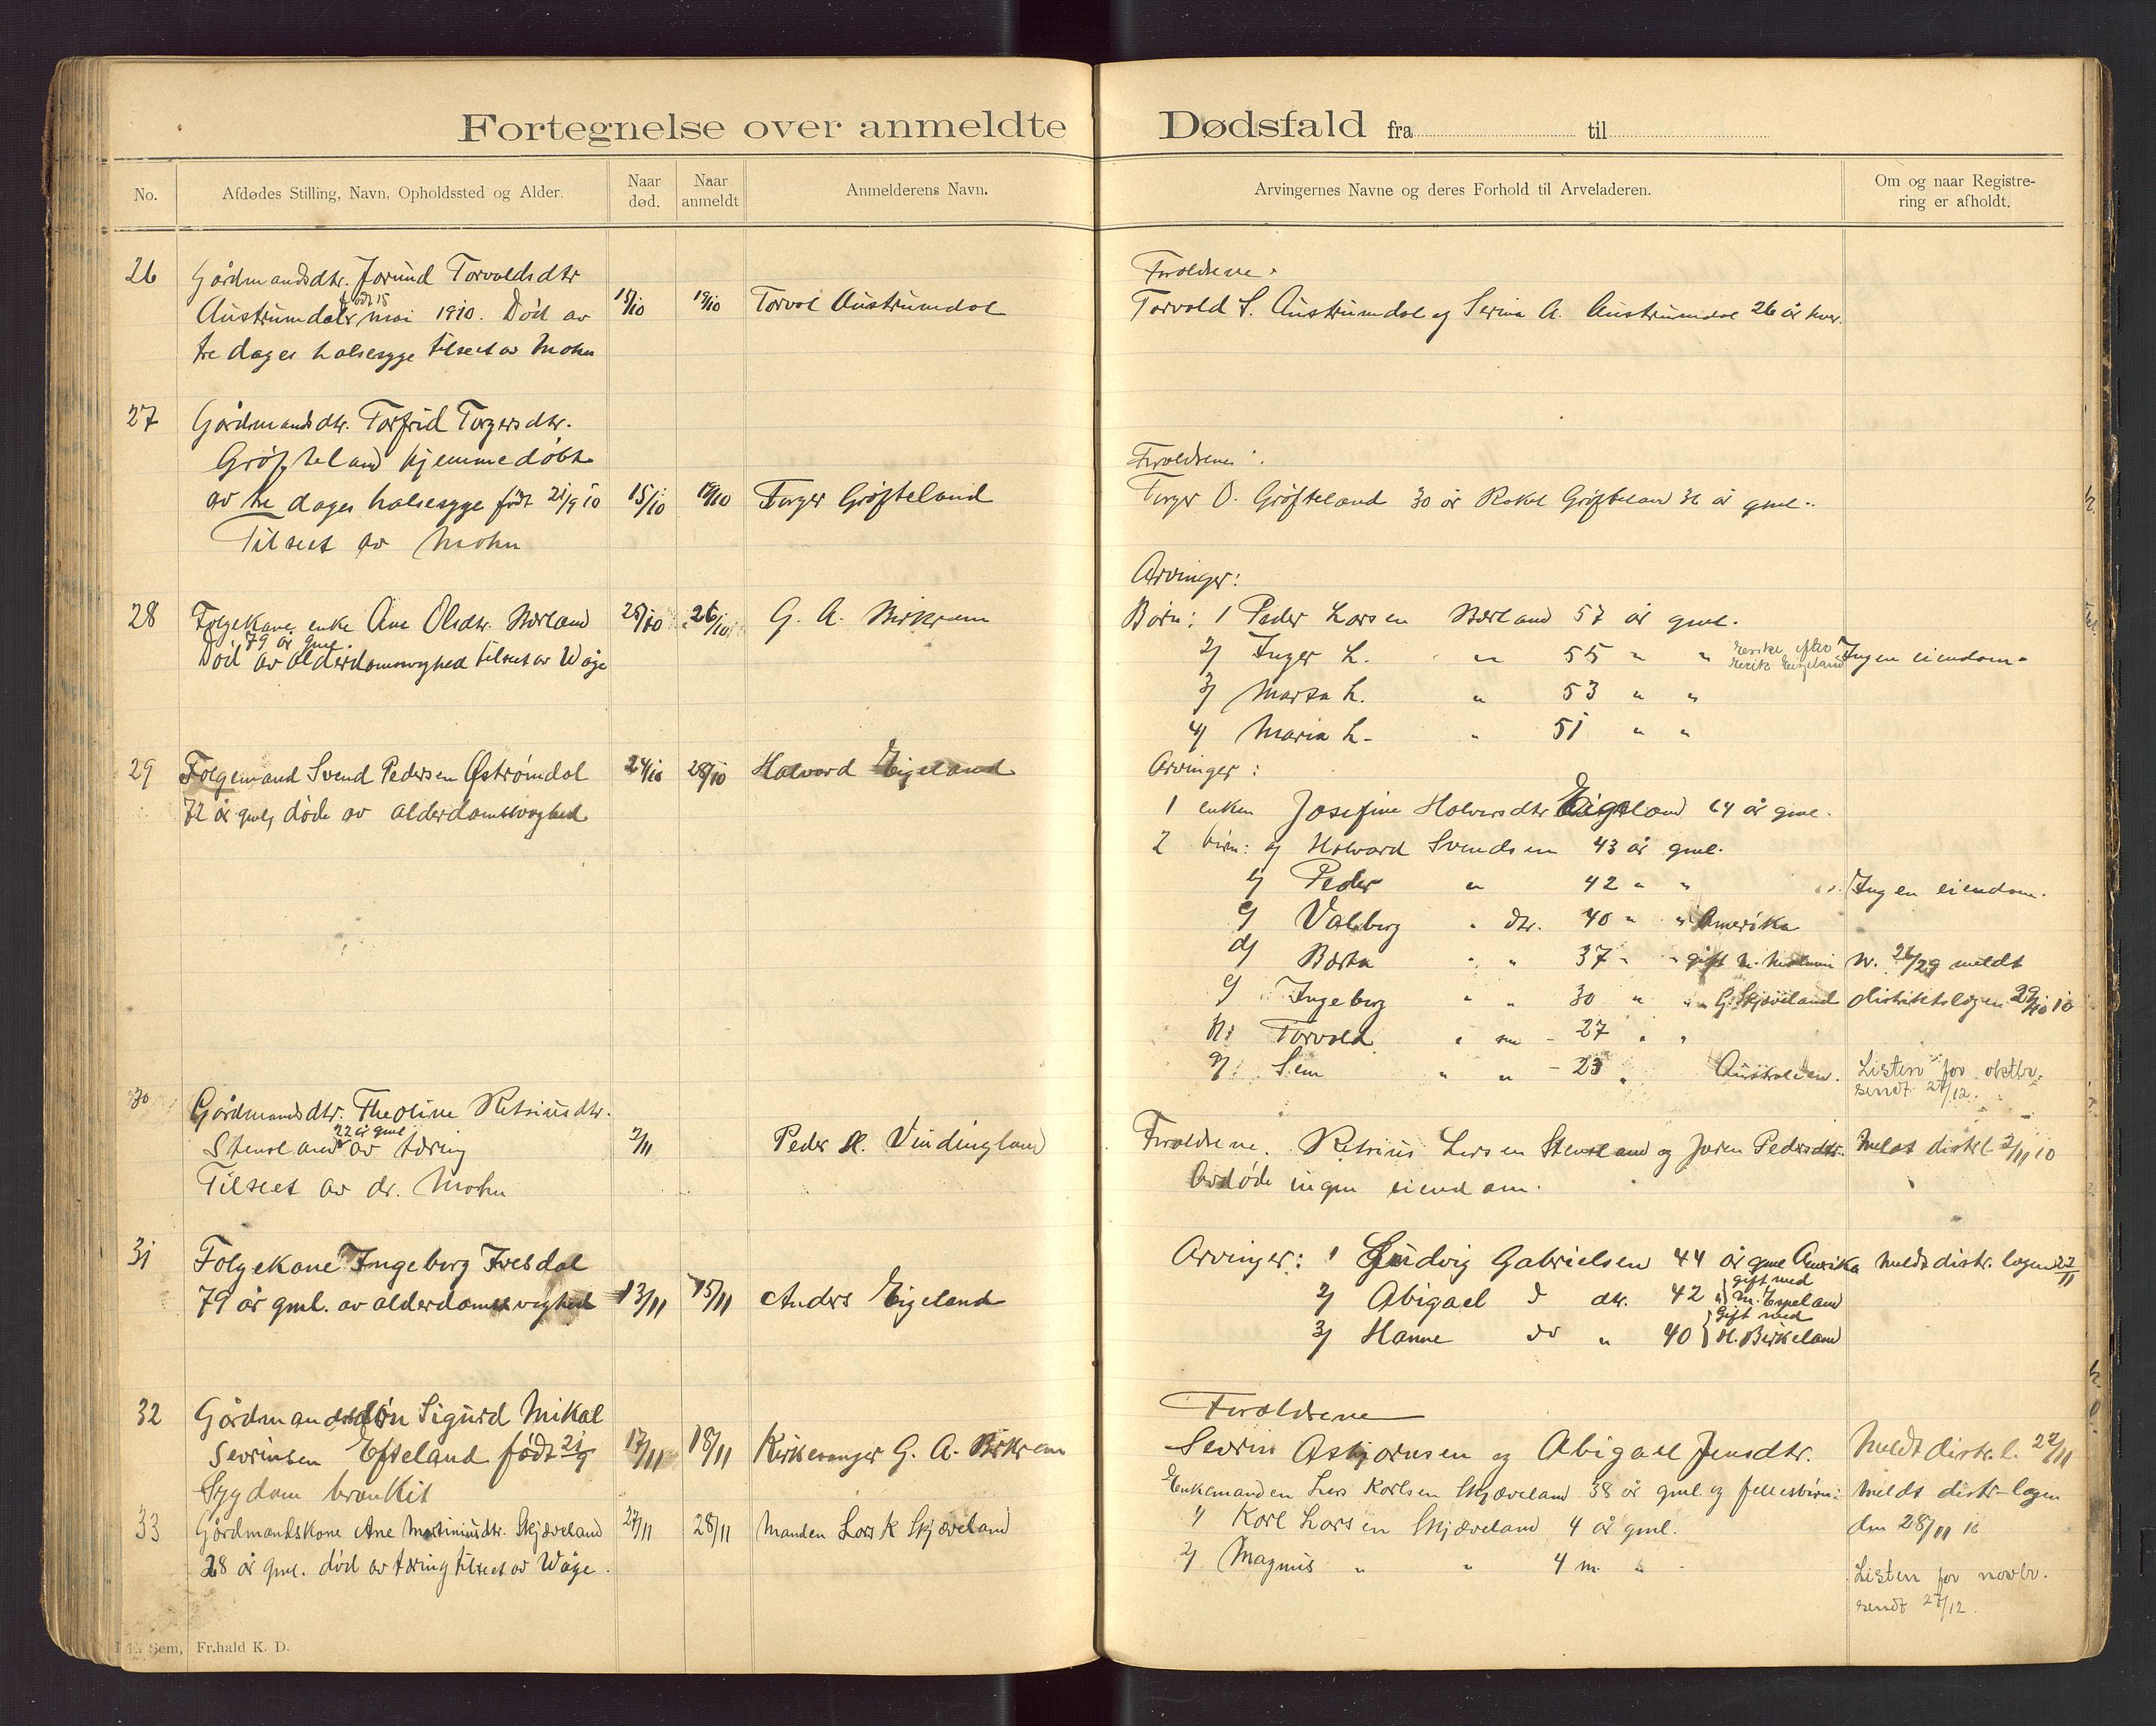 Fortegnelse over anmeldte Dødsfald fra til
No.
Afdødes Stilling, Navn, Opholdssted og Alder.
Naar død.
Naar anmeldt
Anmelderens Navn.
Arvingernes Navne og deres Forhold til Arveladeren.
Om og naar Registre-
ring er afholdt.
26
Gårdmandsdtr. Jorund Torvoldsdtr
Austrumdal født 15 mai 1910. Död av
tre dages halsesyge tilseet av Mohn
15/10
19/10
Torvol Austrumdal
Forældrene.
Torvald S. Austrumdal og Serina A. Austrumdal 26 år hver.
27
Gårdmandsdtr. Torfrid Torgersdtr.
Gröfteland hjemmedöbt
av tre dages halsesyge födt 21/9 10
Tilseet av Mohn
15/10
19/10
Torger Gröfteland
Forældrene.
Torger O. Gröfteland 30 år Rakel Gröfteland 36 år gml.
28
Folgekone enke Ane Olsdtr. Børland
79 år gml.
Död av alderdomssvaghed tilseet av Wåge
25/10
26/10
G. A. Birkrem
Arvinger:
Børn: 1 Peder Larsen Børland 57 år gml.
2/ Inger L. " 55 " " Enke efter
Ingen eiendom.
3/ Marta L. " 53 " "
4/ Maria L. " 51 " "
29
Folgemand Svend Pedersen Øströmdal
72 år gml, döde av alderdomssvaghed
24/10
28/10
Halvard Eigeland
Arvinger:
1 enken Josefine Halvorsdtr Eigeland 64 år gml.
2 börn: a/ Halvard Svendsen 43 år gml.
b/ Peder " 42 " "
Ingen eiendom.
c/ Valborg " dtr. 40 " " Amerika
d/ Berta " " 37 " " gift
Nr. 26/29 meldt
e/ Ingeborg " " 30 " " " G. Skjæveland
distriktslægen 29/10 10
f/ Torvald " søn - 27 " "
g/ Sem " " - 23 " Australien.
Listen for oktbr.
sendt 27/12.
30
Gårdmandsdtr. Theoline Retniusdtr.
22 år gml
Stensland av tæring
Tilseet av dr. Mohn
2/11
Peder H. Vindingland
Forældrene. Retnius Larsen Stensland og Joren Pedersdtr.
Avdöde ingen eiendom.
Meldt distrl. 2/11 10
31
Folgekone Ingeborg Ivesdal
79 år gml. av alderdomssvaghed
13/11
15/11
Anders Eigeland
Arvinger: 1 Ludvig Gabrielsen 44 år gml Amerika
Meldt distr. lægen 22/11
2/ Abigael d dtr. 42 gift med
M. Espeland
3/ Hanne do " 40 gift med
H. Birkeland
32
Gårdmandssön Sigurd Mikal
Sevrinsen Efteland födt 21/9
Sygdom bronkit
17/11
18/11
Kirkesanger G. A. Birkrem
Forældrene
Sevrin Asbjørnsen og Abigael Jensdtr.
Meldt distr. l. 22/11
33
Gårdmandskone Ane Martiniusdtr. Skjæveland
28 år gml. död av tæring tilseet av Wåge.
27/11
28/11
Manden Lars K Skjæveland
Enkemanden Lars Karlsen Skjæveland 38 år gml. og fellesbörn:
1/ Karl Larsen Skjæveland 4 år gml.
2/ Magnus " " 4 m. "
Meldt distr-lægen
den 28/11 10
Listen for novbr.
sendt 27/12.
Sem, Fr.hald K. D.